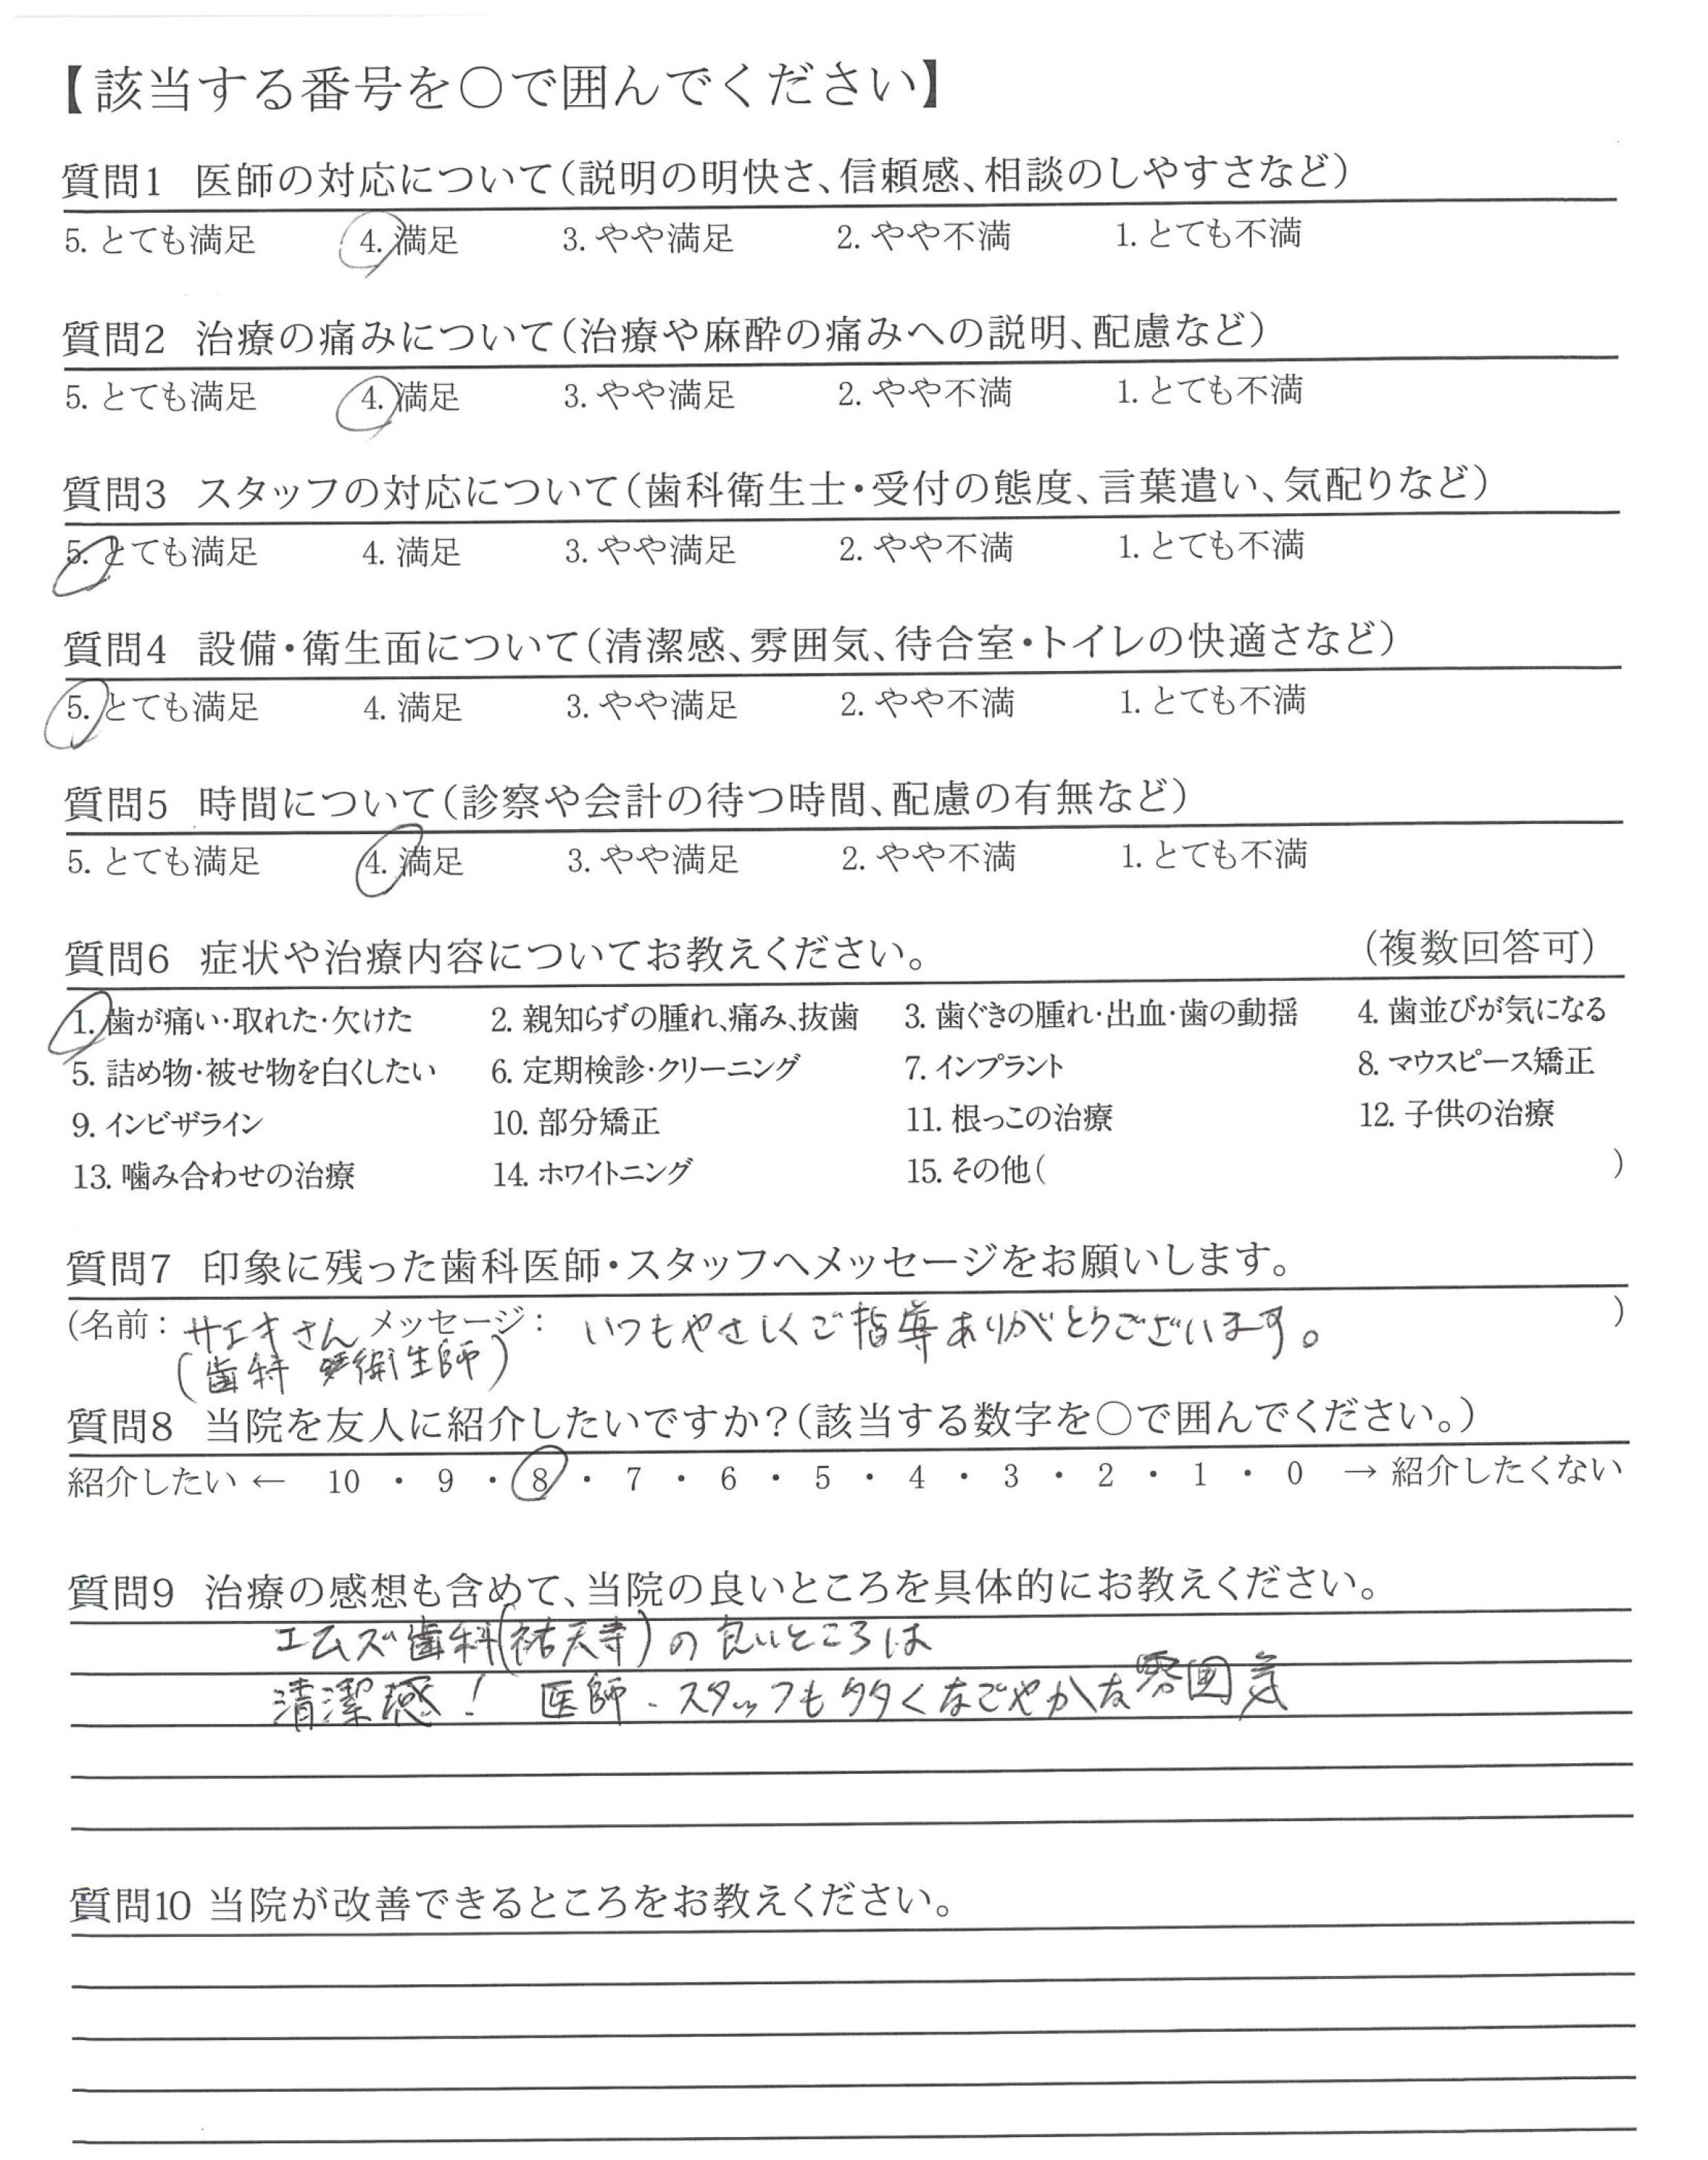 【該当する番号を〇で囲んでください】
質問1 医師の対応について(説明の明快さ、信頼感、相談のしやすさなど)
5. とても満足 4. 満足 3. やや満足 2. やや不満 1. とても不満
質問2 治療の痛みについて(治療や麻酔の痛みへの説明、配慮など)
5. とても満足 4. 満足 3. やや満足 2. やや不満 1. とても不満
質問3 スタッフの対応について(歯科衛生士・受付の態度、言葉遣い、気配りなど)
5. とても満足 4. 満足 3. やや満足 2. やや不満 1. とても不満
質問4 設備・衛生面について(清潔感、雰囲気、待合室・トイレの快適さなど)
5. とても満足 4. 満足 3. やや満足 2. やや不満 1. とても不満
質問5 時間について(診察や会計の待つ時間、配慮の有無など)
5. とても満足 4. 満足 3. やや満足 2. やや不満 1. とても不満
質問6 症状や治療内容についてお教えください。 (複数回答可)
1. 歯が痛い・取れた・欠けた 2. 親知らずの腫れ、痛み、抜歯 3. 歯ぐきの腫れ・出血・歯の動揺 4. 歯並びが気になる
5. 詰め物・被せ物を白くしたい 6. 定期検診・クリーニング 7. インプラント 8. マウスピース矯正
9. インビザライン 10. 部分矯正 11. 根っこの治療 12. 子供の治療
13. 噛み合わせの治療 14. ホワイトニング 15. その他( )
質問7 印象に残った歯科医師・スタッフへメッセージをお願いします。
(名前: サエキさん メッセージ: いつもやさしくご指導ありがとうございます。 )
(歯科 衛生師)
質問8 当院を友人に紹介したいですか?(該当する数字を〇で囲んでください。)
紹介したい ← 10 ・ 9 ・ 8 ・ 7 ・ 6 ・ 5 ・ 4 ・ 3 ・ 2 ・ 1 ・ 0 → 紹介したくない
質問9 治療の感想も含めて、当院の良いところを具体的にお教えください。
エムズ歯科(祐天寺)の良いところは
清潔感! 医師・スタッフも多くなごやかな雰囲気
質問10 当院が改善できるところをお教えください。